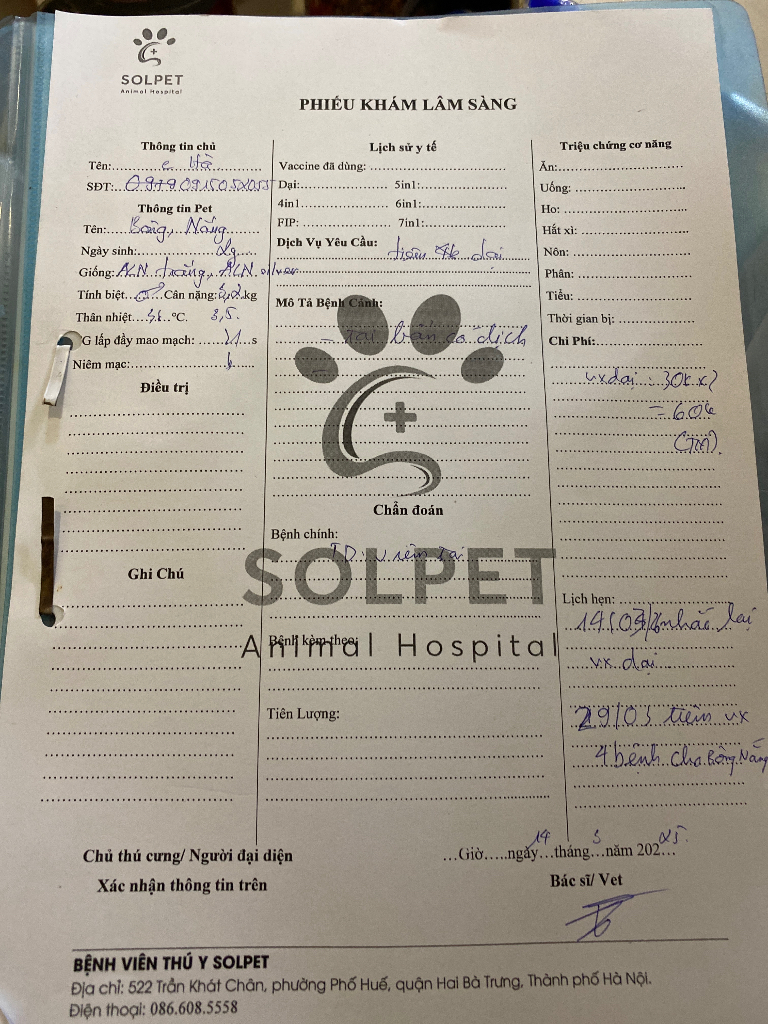 SOLPET
Animal Hospital
PHIẾU KHÁM LÂM SÀNG
Thông tin chủ
Tên: c Hà
SĐT:
Thông tin Pet
Tên: Bông, Nắng
Ngày sinh:
Giống: ALN trắng, ALN silver
Tính biệt Cân nặng: kg
Thân nhiệt °C. 3,5.
G lấp đầy mao mạch: s
Niêm mạc:
Điều trị
Ghi Chú
Lịch sử y tế
Vaccine đã dùng:
Dại: 5in1:
4in1 6in1:
FIP: 7in1:
Dịch Vụ Yêu Cầu: tiêm dại
Mô Tả Bệnh Cảnh:
- bản có dịch
SOLPET
Animal Hospital
Chẩn đoán
Bệnh chính:
TD: Viêm tai
Bệnh kèm theo:
Tiên Lượng:
Triệu chứng cơ năng
Ăn:
Uống:
Ho:
Hắt xì:
Nôn:
Phân:
Tiểu:
Thời gian bị:
Chi Phí:
vx dại: 30k x2
= 60k
(TM).
Lịch hẹn:
nhắc lại
vx dại
29/03 tiêm vx
4 bệnh cho Bông, Nắng
Chủ thú cưng/ Người đại diện
Xác nhận thông tin trên
…Giờ…..ngày 14 tháng 3 năm 202 25.
Bác sĩ/ Vet
BỆNH VIÊN THÚ Y SOLPET
Địa chỉ: 522 Trần Khát Chân, phường Phố Huế, quận Hai Bà Trưng, Thành phố Hà Nội.
Điện thoại: 086.608.5558